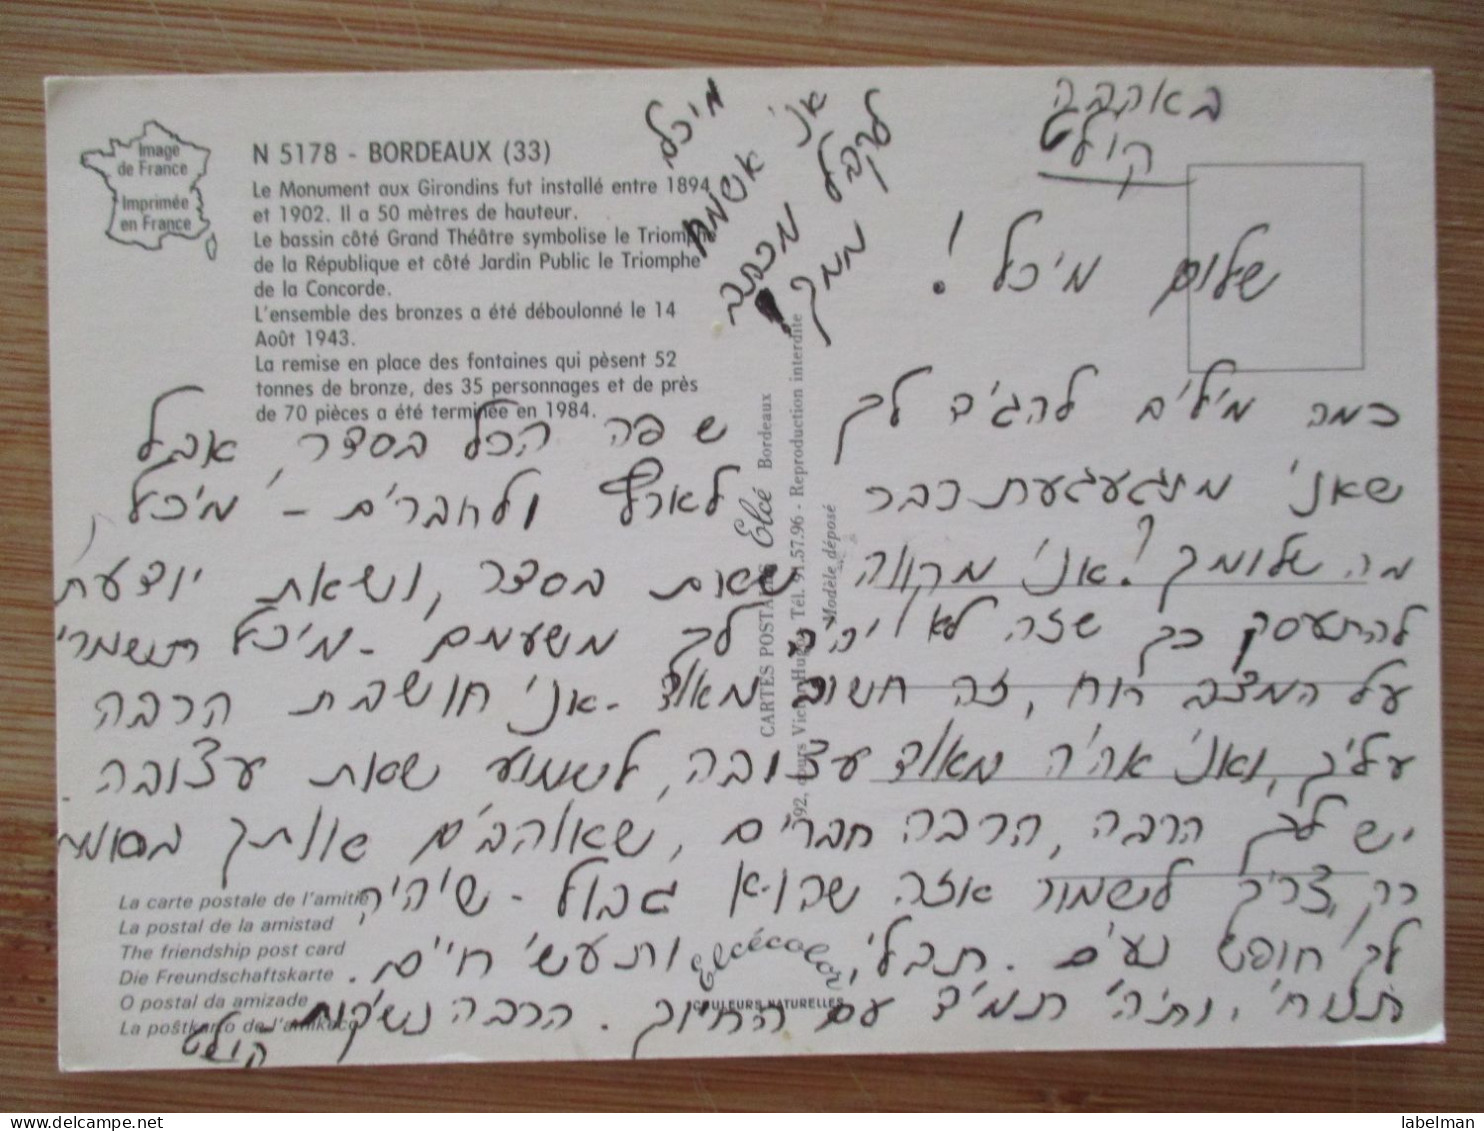 Image
de France
Imprimée
en France
N 5178 - BORDEAUX (33)
Le Monument aux Girondins fut installé entre 1894
et 1902. Il a 50 mètres de hauteur.
Le bassin côté Grand Théâtre symbolise le Triomphe
de la République et côté Jardin Public le Triomphe
de la Concorde.
L'ensemble des bronzes a été déboulonné le 14
Août 1943.
La remise en place des fontaines qui pèsent 52
tonnes de bronze, des 35 personnages et de près
de 70 pièces a été terminée en 1984.
מיכל
אני אשמח
לקבל מכתב
ממך!
באהבה
קולט
שלום מיכל!
כמה מילים להגיד לך שפה הכל בסדר, אבל
שאני מתגעגעת כבר לארץ ולחברים - מיכל,
מה שלומך? אני מקווה שאת בסדר, ושאת יודעת
להתעסק כך שזה לא יהיה לך משעמם - מיכל תשמרי
על המצב רוח, זה חשוב מאוד - אני חושבת הרבה
עליך, ואני אהיה מאוד עצובה, לשמוע שאת עצובה.
יש לך הרבה, הרבה חברים, שאוהבים אותך באמת
רק צריך לשמור איזה שהוא גבול - שיהיה
לך חופש נעים. תבלי, ותעשי חיים.
תנוחי, ותהיי תמיד עם החיוך. הרבה נשיקות
קולט
CARTES POSTALES Elcé Bordeaux
92, cours Victor Hugo - Tél. 91.57.96 - Reproduction interdite
Modèle déposé
La carte postale de l'amitié
La postal de la amistad
The friendship post card
Die Freundschaftskarte
O postal da amizade
La poŝtkarto de l'amikeco
Elcécolor
COULEURS NATURELLES
www.delcampe.net
labelman